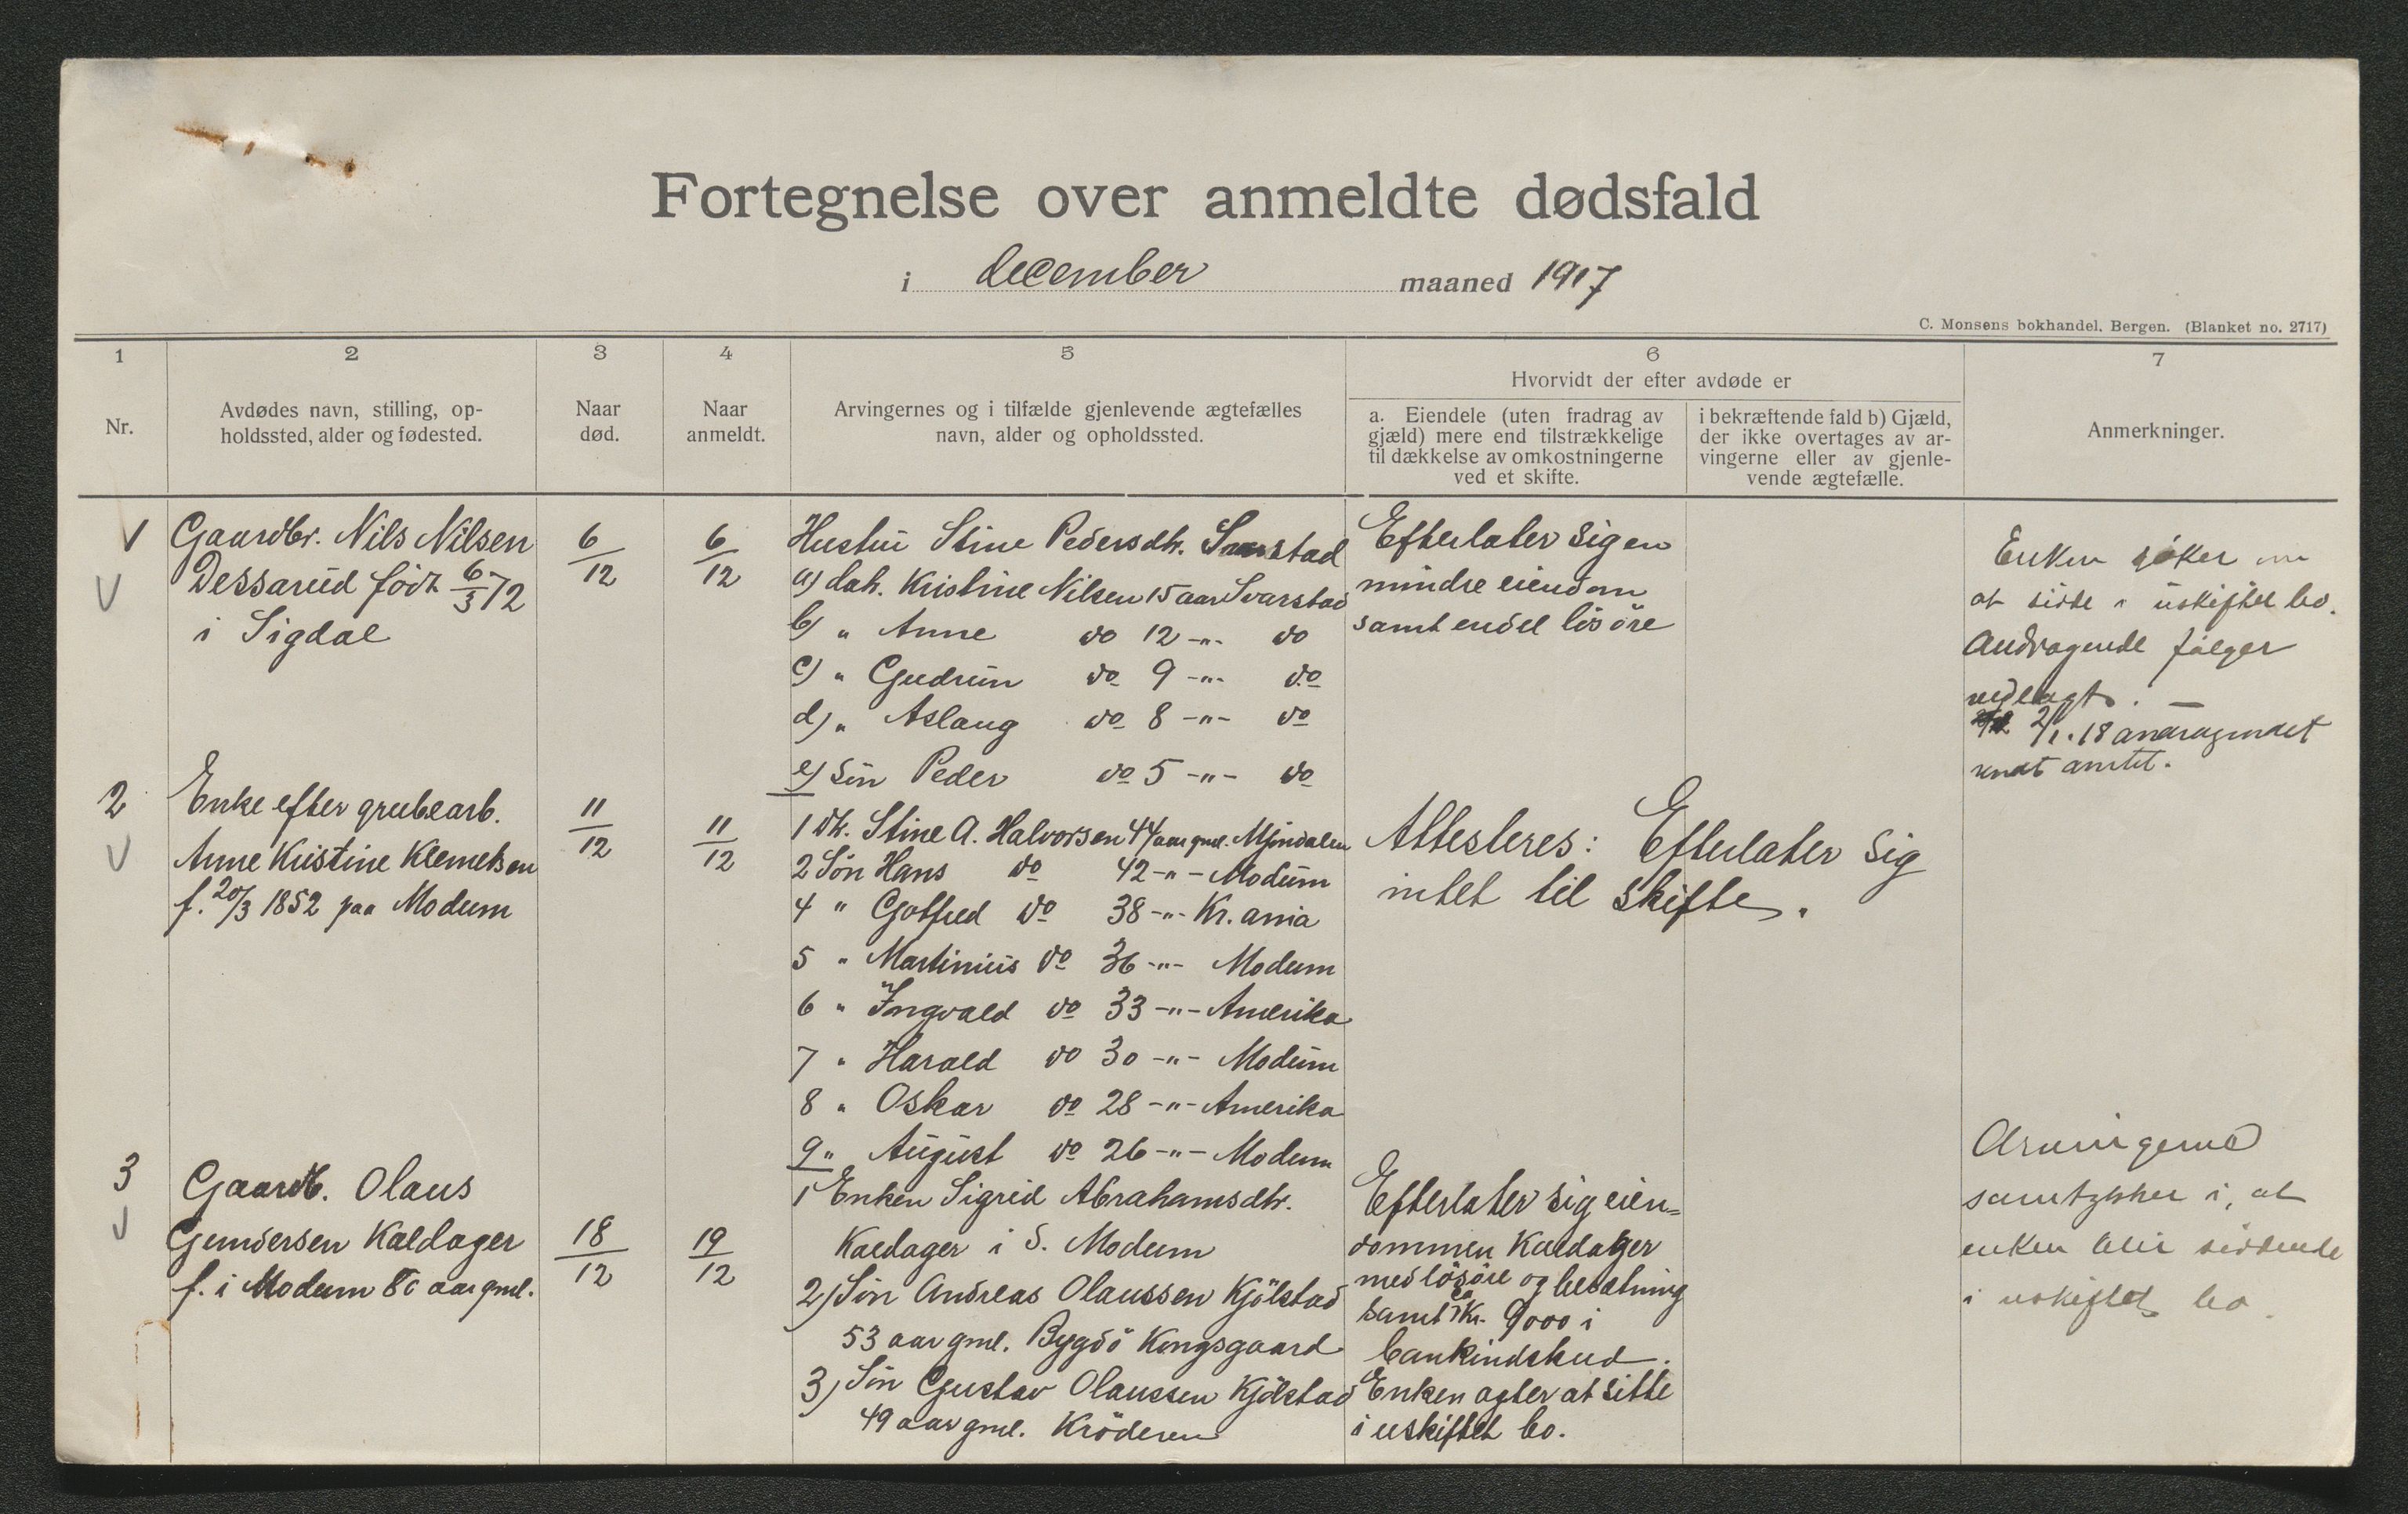 Fortegnelse over anmeldte dødsfald
i december maaned 1917
C. Monsens bokhandel, Bergen. (Blanket no. 2717)
1 2 3 4 5 6 7
Nr.
Avdødes navn, stilling, op-
holdssted, alder og fødested.
Naar
død.
Naar
anmeldt.
Arvingernes og i tilfælde gjenlevende ægtefælles
navn, alder og opholdssted.
Hvorvidt der efter avdøde er
a. Eiendele (uten fradrag av
gjæld) mere end tilstrækkelige
til dækkelse av omkostningerne
ved et skifte.
i bekræftende fald b) Gjæld,
der ikke overtages av ar-
vingerne eller av gjenle-
vende ægtefælle.
Anmerkninger.
1
Gaardbr. Nils Nilsen
Dessarud født 6/3 72
i Sigdal
6/12
6/12
Hustru Stine Pedersdtr. Svarstad
a) dat. Kristine Nilsen 15 aar Svarstad
b) " Anne do 12 -"- do
c) " Gudrun do 9 -"- do
d) " Aslaug do 8 -"- do
e) Søn Peder do 5 -"- do
Efterlater sig en
mindre eiendom
samt endel løsöre
Enken søker om
at sidde i uskiftet bo.
Andragende følger
vedlagt. —
2/1.18 andragendet
sendt amtet.
2
Enke efter grubearb.
Anne Kristine Klemetsen
f. 20/3 1852 paa Modum
11/12
11/12
1 dtr. Stine A. Halvorsen 44 aar gml. Mjøndalen
2 Søn Hans do 42 -"- Modum
4 " Gotfred do 38 -"- Kr.ania
5 " Martinius do 36 -"- Modum
6 " Ingvald do 33 -"- Amerika
7 " Harald do 30 -"- Modum
8 " Oskar do 28 -"- Amerika
9 " August do 26 -"- Modum
Attesteres: Efterlater sig
intet til skifte.
3
Gaardb. Olaus
Gundersen Kaldager
f. i Modum 80 aar gml.
18/12
19/12
1 Enken Sigrid Abrahamsdtr.
Kaldager i S. Modum
2) Søn Andreas Olaussen Kjölstad
53 aar gml. Bygdö Kongsgaard
3) Søn Gustav Olaussen Kjölstad
49 aar gml. Kröderen
Efterlater sig eien=
dommen Kaldager
med lösöre og besætning
samt ca Kr. 9000 i
bankindskud.
Enken agter at sitte
i uskiftet bo.
Arvingerne
samtykker i, at
enken blir siddende
i uskiftet bo.